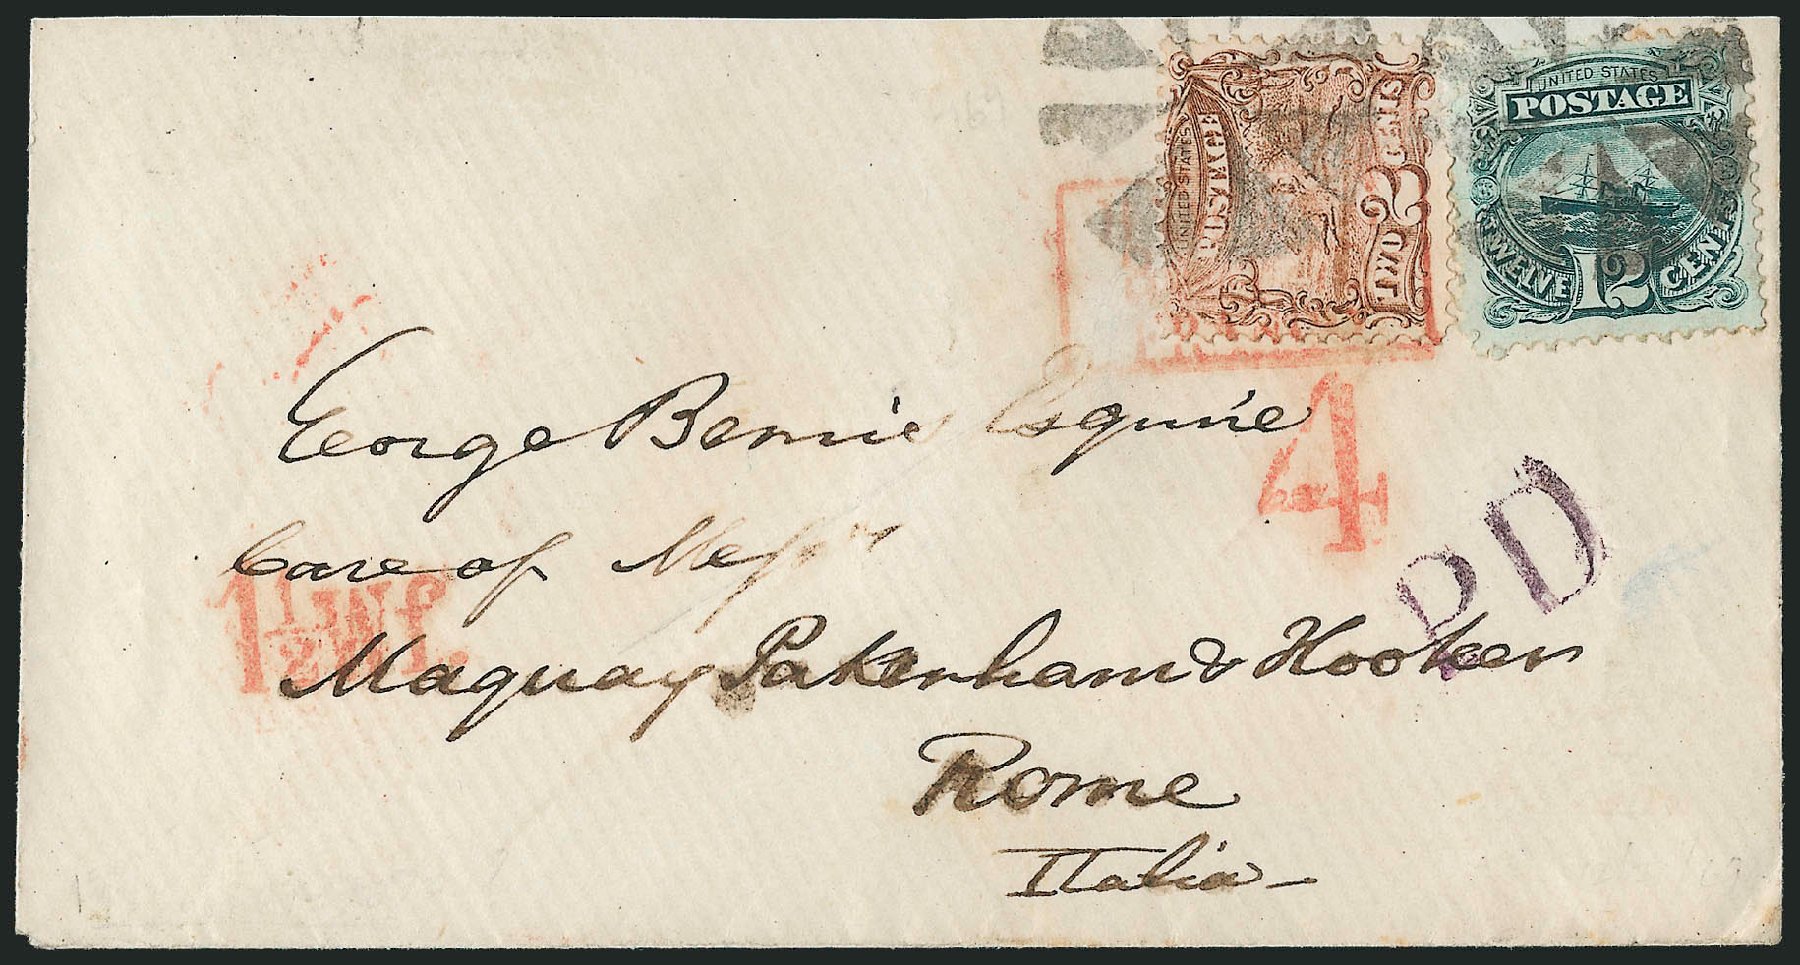 UNITED STATES
POSTAGE
TWO CENTS
2
UNITED STATES
POSTAGE
TWELVE CENTS
12
George Bemis Esquire
4
Care of Mess
PD
1 1/2 Wf.
Maquay Pakenham & Hooker
Rome
Italia